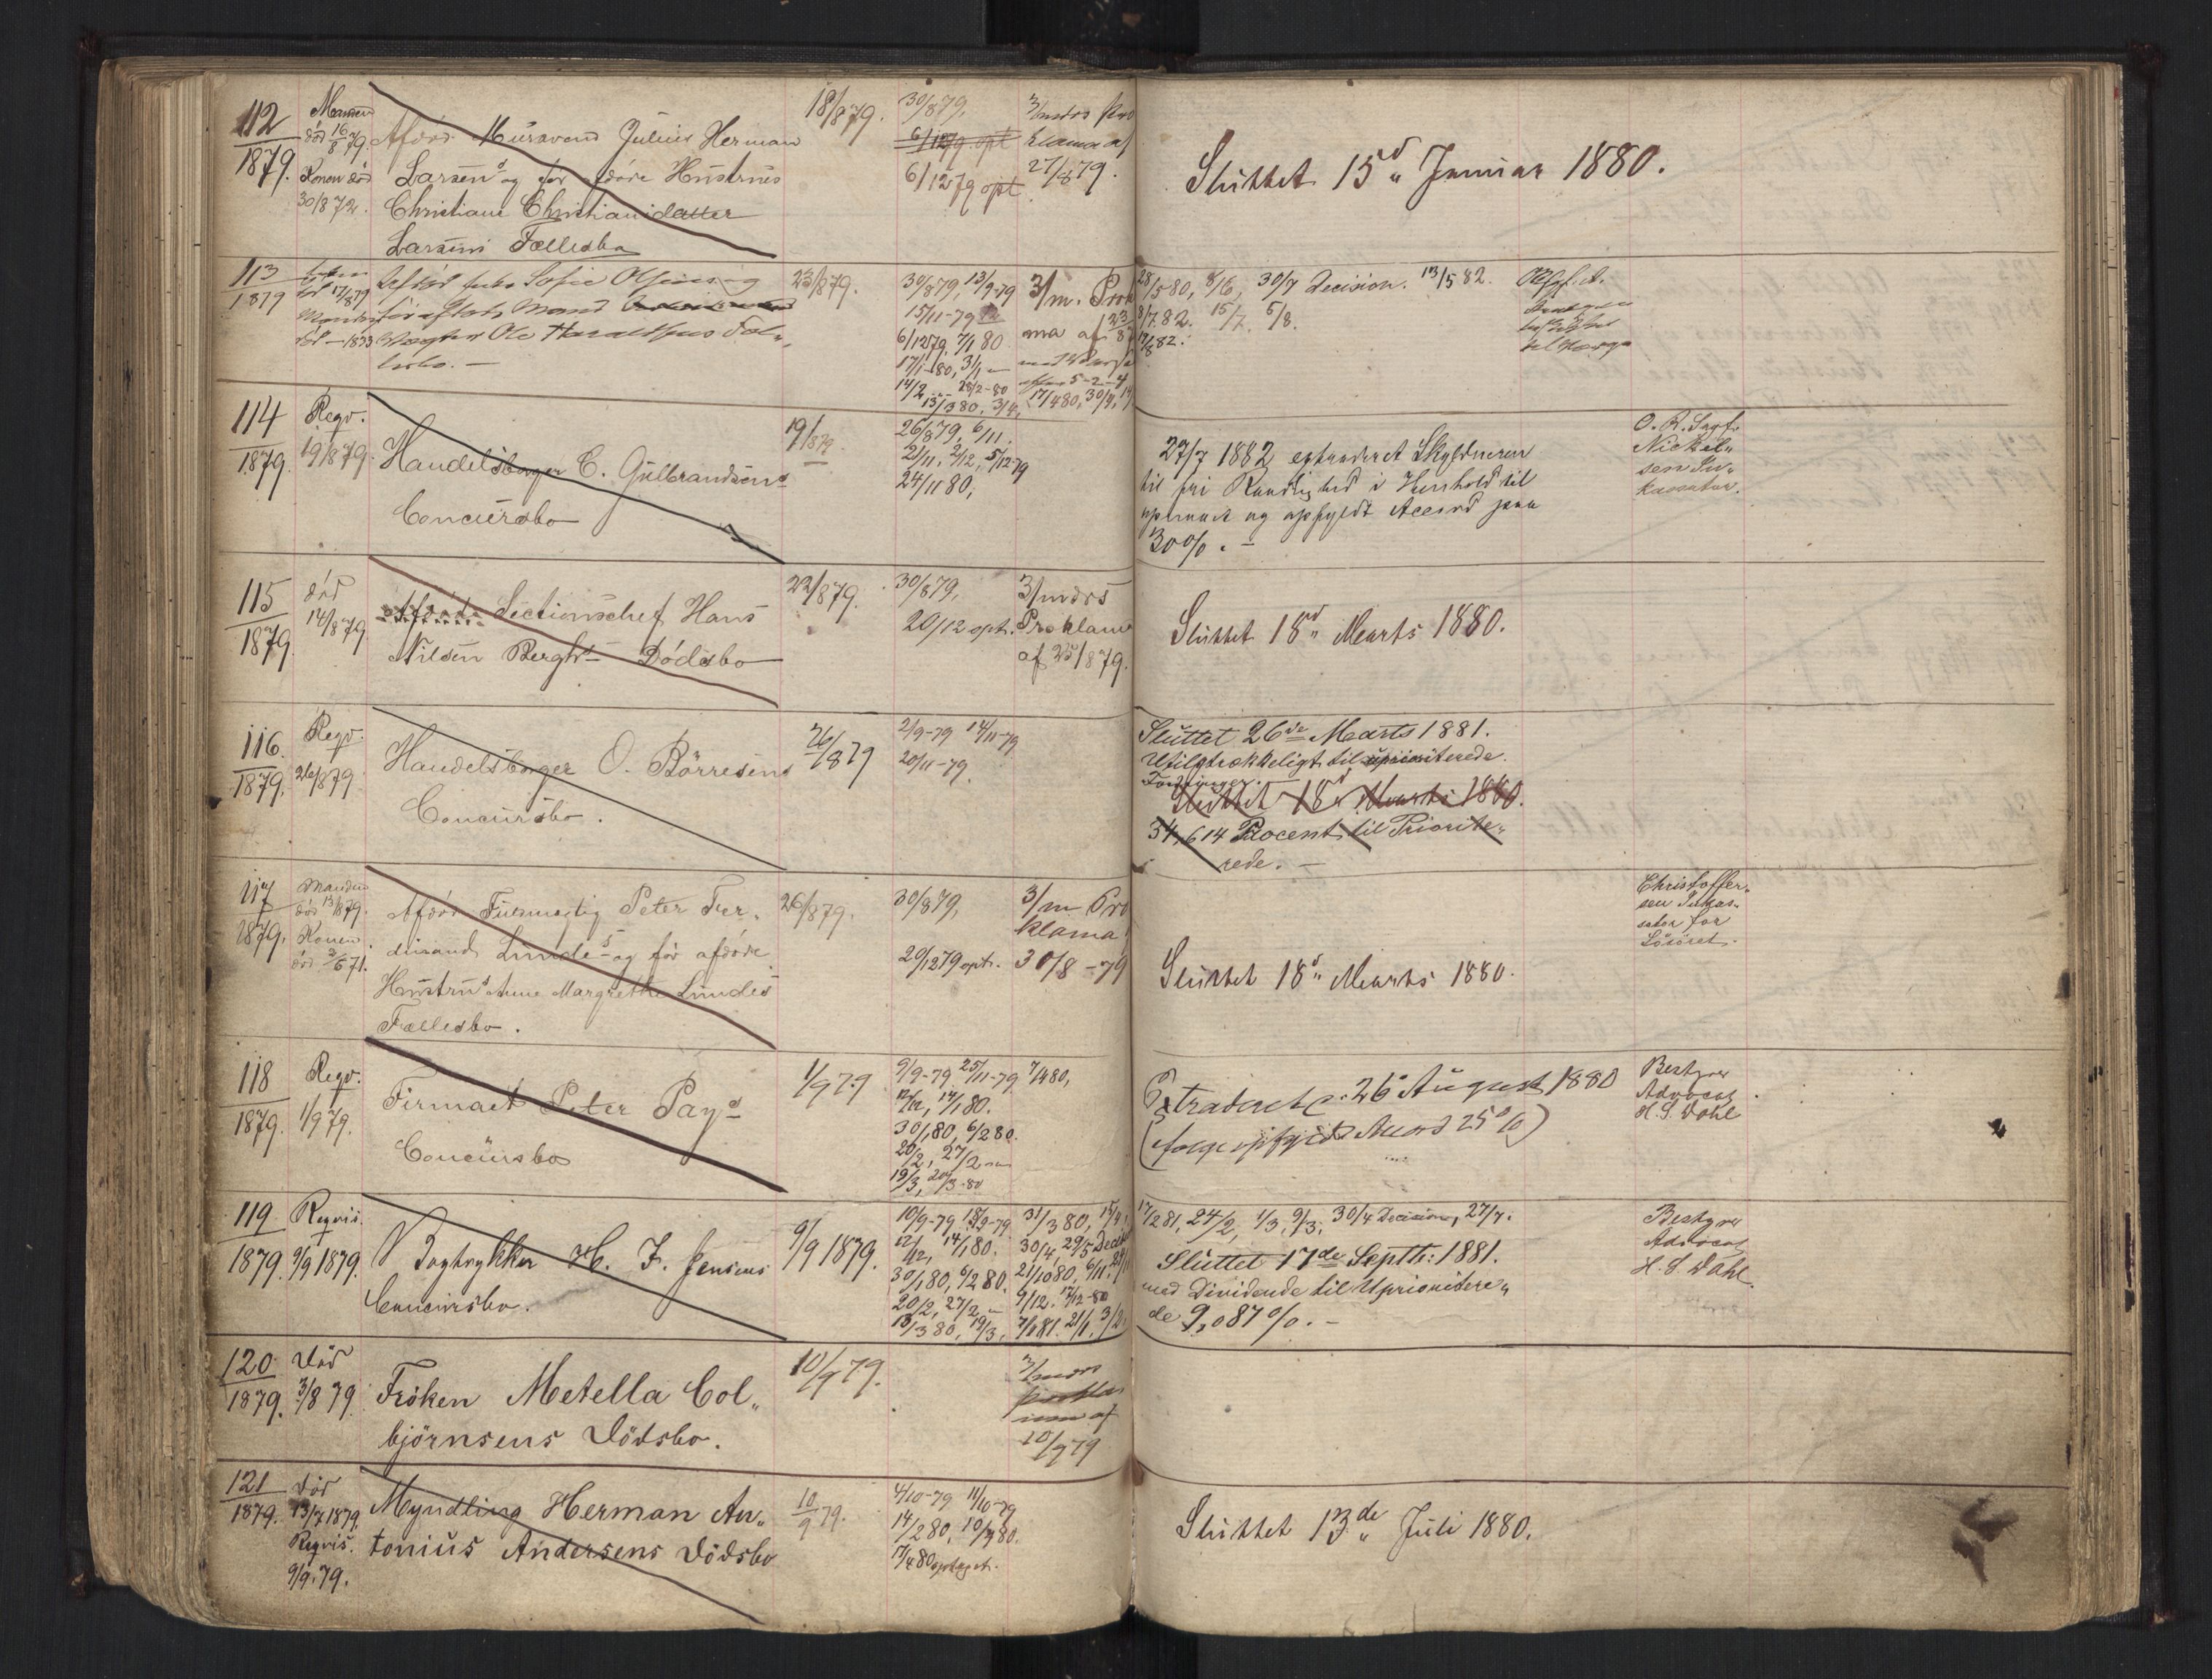 112
1879.
Manden
død 16/8 79.
Konen død
30/8 72.
Afdød Mursvend Julius Herman
Larsens og før afdøde Hustrues
Christiane Christiansdatter
Larsens Fællesbo
18/879.
30/879,
6/1279 opt
6/1279 opt
3/mdrs Pro
klama af
27/879.
Sluttet 15d Januar 1880.
113
1879
død 17/879
Manden
død - 1873
Sofie Olsens og
før afdøde Mand
Ole Haraldsens Fæl-
lesbo. -
23/879.
30/879, 13/9-79
15/11-79
6/1279, 7/1 80
17/1-80, 31/1 -
14/2 28/2-80
13/380, 3/4,
3/m. Prok
ma af 23/8
17/480, 30/4, 14/
28/5 80, 8/6, 30/7 Decision. 13/5 82.
8/7.82. 15/7. 5/8.
17/8 82.
114
1879.
Reqv.
19/879.
Handelsborger C. Gulbrandsens
Concursbo
19/879.
26/879, 6/11.
21/11, 2/12, 5/1279
24/1180,
27/7 1882 extraderet Skyldneren
til fri Raadighed i Henhold til
og opfyldt Accord paa
30%. -
O. R. Sagf.
Nickel-
sen In-
kassator.
115
1879.
død
14/879
Afdøde Sectionschef Hans
Nilsen Berghs Dødsbo
22/879.
30/879,
20/12 opt.
3/mdrs
Proklama
af 25/879.
Sluttet 18d Marts 1880.
116.
1879.
Reqv.
26/879
Handelsborger O. Børresens
Concursbo.
26/879
2/9-79 14/11-79
20/11-79.
Sluttet 26de Marts 1881.
Utilstrækkeligt til uprioriterede
Fordringer.
Sluttet 18d Marts 1880.
34,614 Procent til Priorite-
rede. -
117
1879.
Manden
død 13/879.
Konen
død 2/671.
Afdød Fuldmægtig Peter Fer-
dinand Lindes og før afdøde
Hustrus Anne Margrethe Lindes
Fællesbo.
26/879.
30/879,
20/1279 opt.
3/m Pro
klama
30/8-79
Sluttet 18d Marts 1880.
Christoffer-
sen Inkas-
sator for
Løsøret.
118
1879.
Reqv.
1/979.
Firmaet Peter Pays
Concursbo
1/979
9/9-79 25/11-79
12/12, 14/180.
30/180, 6/280.
20/2, 27/2
13/3, 20/3-80
7/480,
Extraderet d. 26 August 1880
(ifølge opfyldt Accord 25%)
Bestyrer
Advocat
H. S. Dahl
119
1879.
Reqvis.
9/9 1879.
Bogtrykker H. J. Jensens
Concursbo.
9/9 1879.
10/9-79 18/9-79
12/12, 14/180.
30/180, 6/280.
20/2, 27/2 -
13/380, 19/3,
31/380, 15/4,
30/4 29/5 Decis
21/1080, 6/11,
9/12. 17/12-80
7/181. 21/1, 3/2
17/281, 24/2, 1/3, 9/3, 30/4 Decision, 27/7.
Sluttet 17de Septbr: 1881.
med Dividende til Uprioritere-
de 9,087%. -
Bestyrer
Advocat
H. S. Dahl.
120
1879.
Død
3/8 79
Frøken Metella Col-
bjørnsens Dødsbo.
10/979.
3/mdrs
Prokla
ma af
10/979
121
1879.
Død
13/7 1879.
Reqvis.
9/9.79.
Myndling Herman An-
tonius Andersens Dødsbo
10/9 79.
4/10-79 11/10-79
14/280, 10/480.
17/480 optaget.
Sluttet 13de Juli 1880.